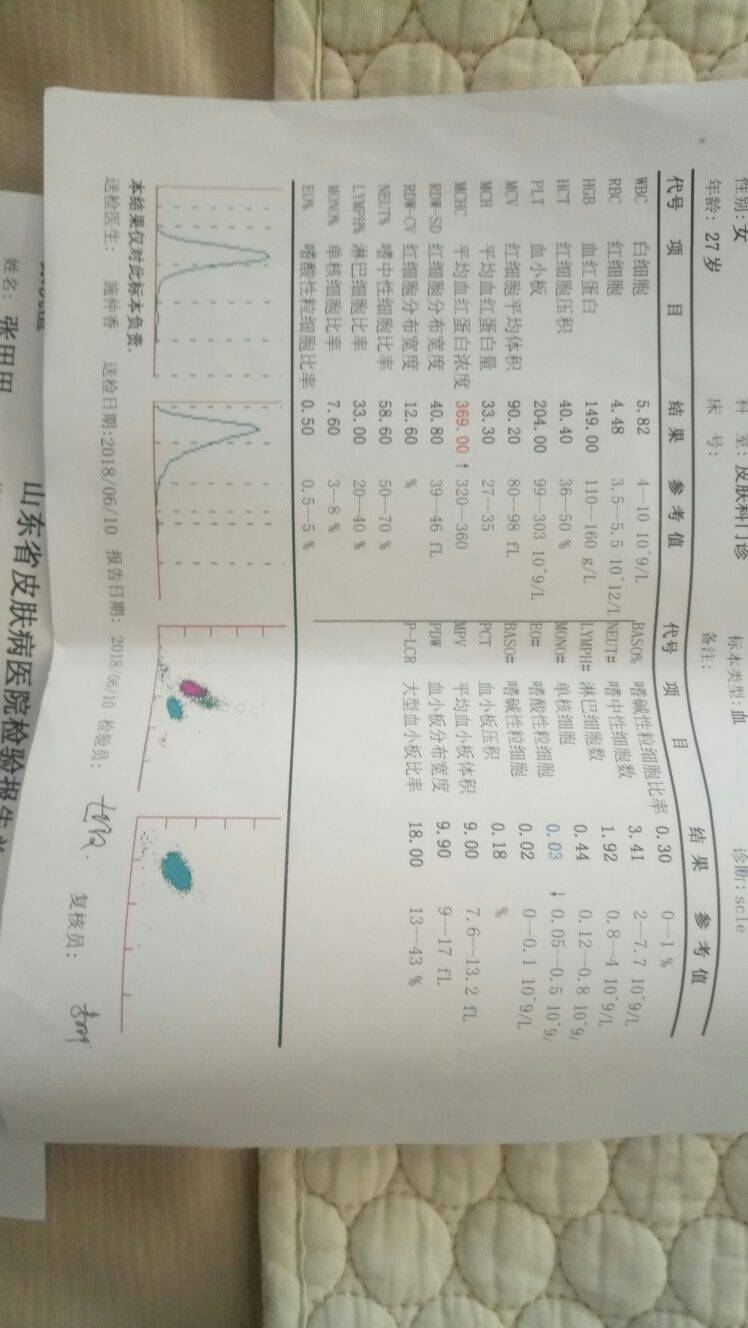 性别:女 科 室:皮肤科门诊 标本类型:血 诊断:scle
年龄: 27 岁 床 号: 备注:
代号 项 目 结 果 参 考 值 代号 项 目 结 果 参 考 值
WBC 白细胞 5.82 4--10 10^9/L BASO% 嗜碱性粒细胞比率 0.30 0--1 %
RBC 红细胞 4.48 3.5--5.5 10^12/L NEUT# 嗜中性细胞数 3.41 2--7.7 10^9/L
HGB 血红蛋白 149.00 110--160 g/L LYMPH# 淋巴细胞数 1.92 0.8--4 10^9/L
HCT 红细胞压积 40.40 36--50 % MONO# 单核细胞 0.44 0.12--0.8 10^9/
PLT 血小板 204.00 99--303 10^9/L EO# 嗜酸性粒细胞 0.03 ↓ 0.05--0.5 10^9/
MCV 红细胞平均体积 90.20 80--98 fL BASO# 嗜碱性粒细胞 0.02 0--0.1 10^9/L
MCH 平均血红蛋白量 33.30 27--35 PCT 血小板压积 0.18 %
MCHC 平均血红蛋白浓度 369.00 ↑ 320--360 MPV 平均血小板体积 9.00 7.6--13.2 fL
RDW-SD 红细胞分布宽度 40.80 39--46 fL PDW 血小板分布宽度 9.90 9--17 fL
RDW-CV 红细胞分布宽度 12.60 % P-LCR 大型血小板比率 18.00 13--43 %
NEUT% 嗜中性细胞比率 58.60 50--70 %
LYMPH% 淋巴细胞比率 33.00 20--40 %
MONO% 单核细胞比率 7.60 3--8 %
EO% 嗜酸性粒细胞比率 0.50 0.5--5 %
本结果仅对此标本负责.
送检医生: 施仲香 送检日期:2018/06/10 报告日期: 2018/06/10 检验员: 复核员:
山东省皮肤病医院检验报告单
姓名: 张田田